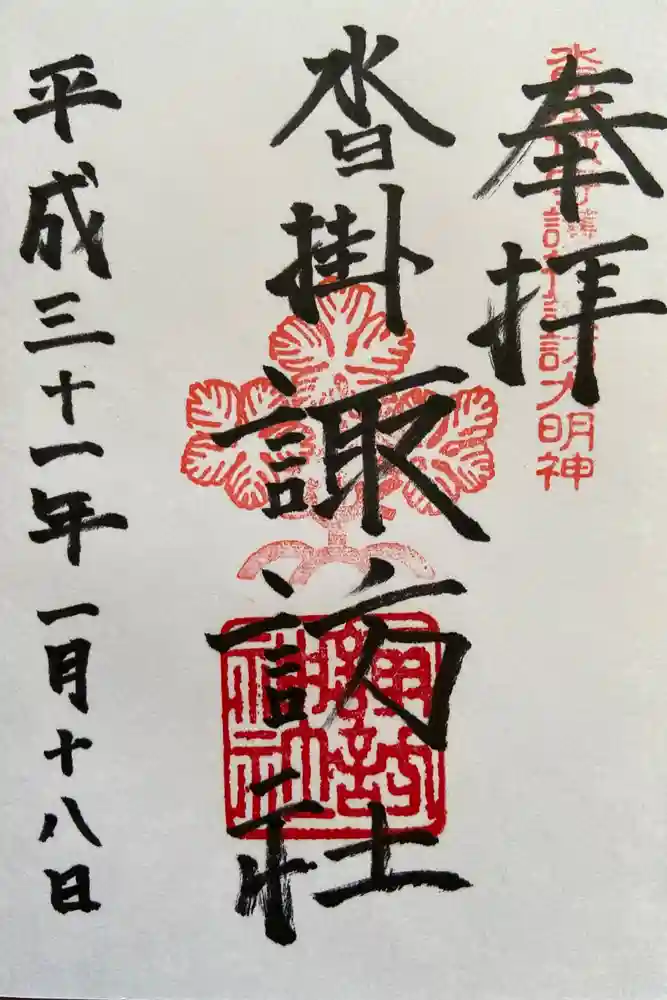 奉拝
大明神
沓掛諏訪社
平成三十一年一月十八日